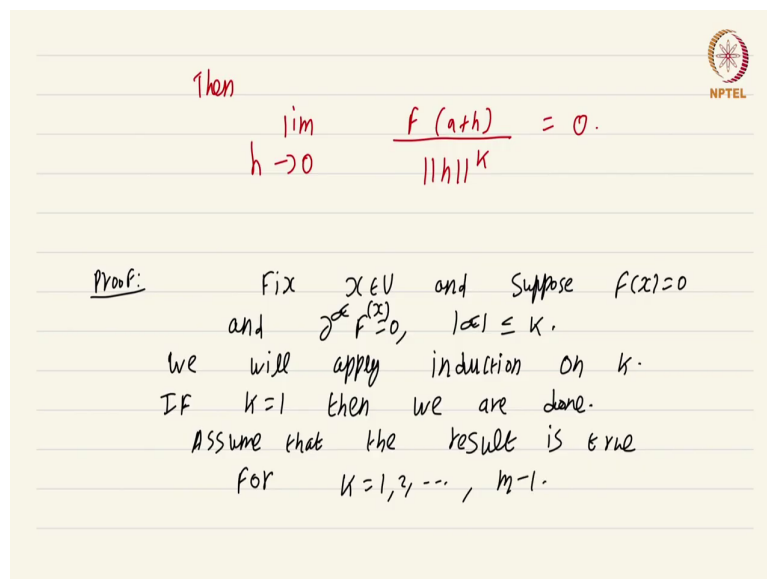 NPTEL
Then
lim F(a+h) = 0.
h→0 ||h||^K
Proof: Fix x∈U and Suppose F(x)=0
and ∂^α F(x)=0, |α| ≤ K.
We will apply induction on K.
IF K=1 then we are done.
Assume that the result is true
For K=1,2,---, m-1.